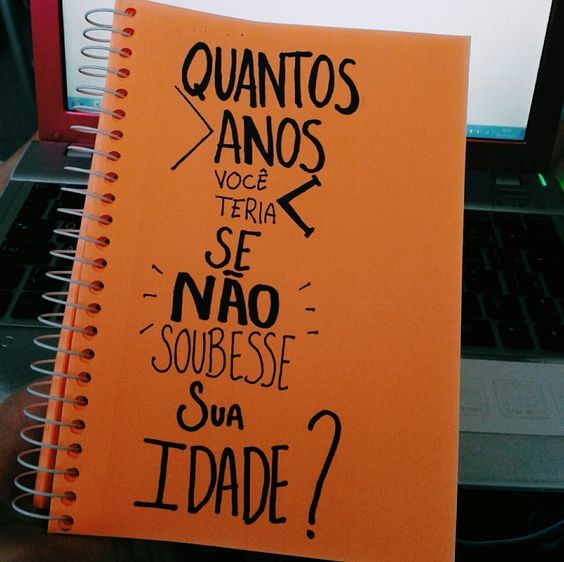 QUANTOS
ANOS
VOCÊ
TERIA
SE
NÃO
SOUBESSE
SUA
IDADE?